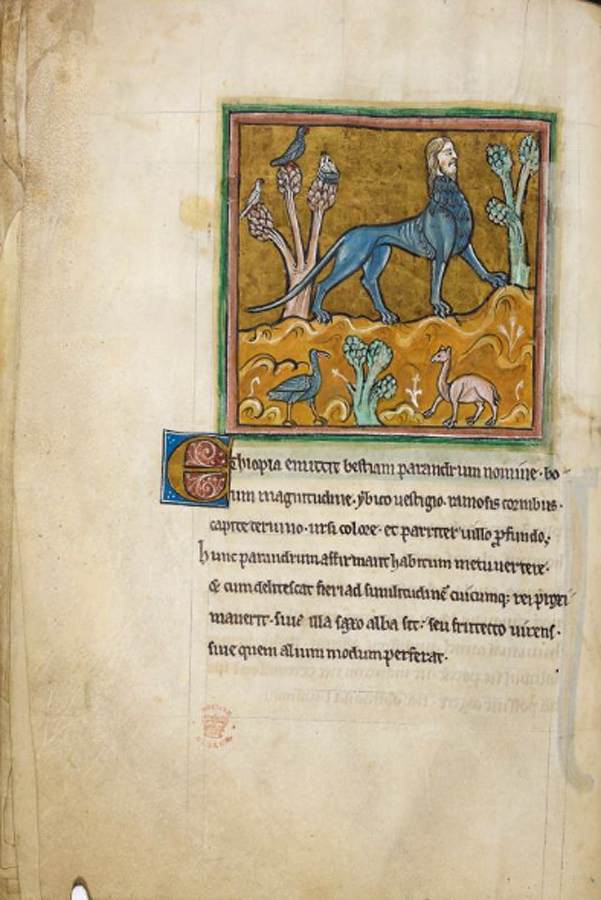 Ethiopia emittit bestiam parandrum nomine · bo-
um magnitudine · ybico uestigio · ramosis cornibus ·
capite ceruino · ursi colore · et pariter uillo ꝓfundo;
hunc parandrum affirmant habitum metu uertere ·
& cum delitescat fieri ad similitudinē cuicumqꝫ rei
mauerit · siue illa saxo alba sit · seu frutecto uirens ·
siue quem alium modum perferat ·